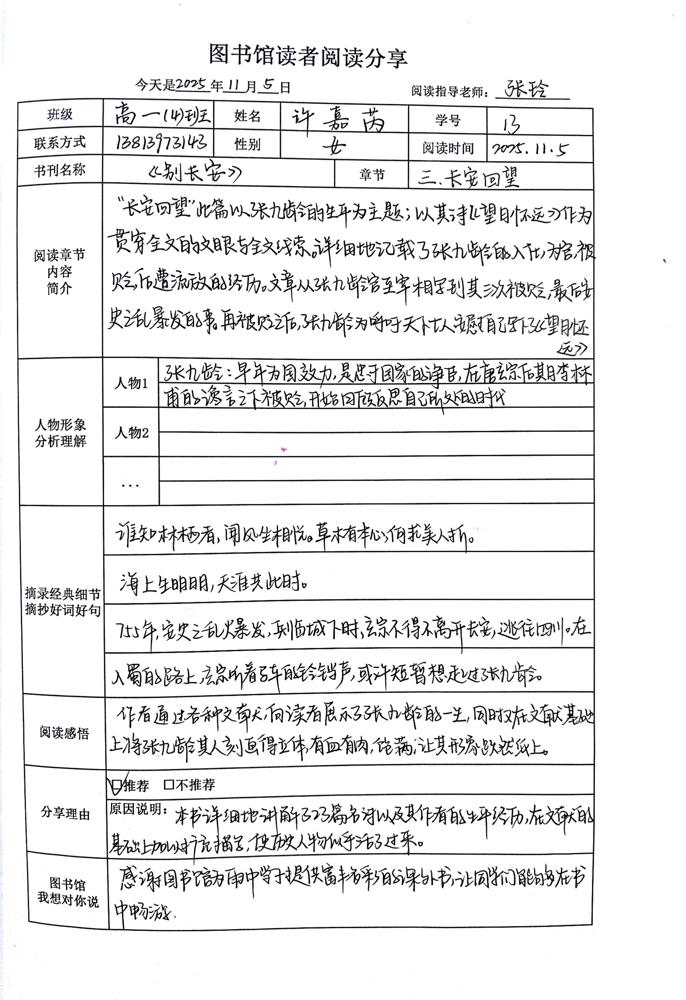 图书馆读者阅读分享
今天是2025年11月5日 阅读指导老师：张玲
班级 高一(4)班 姓名 许嘉芮 学号 13
联系方式 13813973143 性别 女 阅读时间 2025.11.5
书刊名称 《别长安》 章节 三.长安回望
阅读章节
内容
简介
"长安回望"此篇以张九龄的生平为主题；以其诗《望月怀远》作为
贯穿全文的文眼与全文线索。详细地记载了张九龄的入仕，为官，被
贬，后遭流放的经历。文章从张九龄官至宰相写到其三次被贬，最后安
史之乱暴发的事。再被贬之后，张九龄为呼吁天下士人安慰自己写下《望月怀
远》
人物形象
分析理解
人物1 张九龄：早年为国效力，是忠于国家的诤臣，在唐玄宗后其因李林
甫的谗言之下被贬，开始回顾反思自己所处的时代
人物2
…
摘录经典细节
摘抄好词好句
谁知林栖者，闻风坐相悦。草木有本心，何求美人折。
海上生明明，天涯共此时。
755年，安史之乱火暴发，兵临城下时，玄宗不得不离开长安，逃往四川。在
入蜀的路上，玄宗听着马车的铃铛声，或许短暂想起过张九龄。
阅读感悟
作者通过各种文献，向读者展示了张九龄的一生，同时又在文献基础
上将张九龄其人刻画得立体，有血有肉，饱满，让其形象跃然纸上。
分享理由
☑推荐 □不推荐
原因说明：本书详细地讲解了23篇名诗以及其作者的生平经历，在文献的
基础上加以扩充描写，使历史人物似乎活了过来。
图书馆
我想对你说
感谢图书馆为雨中学子提供富丰多彩的课外书，让同学们能够在书
中畅游.